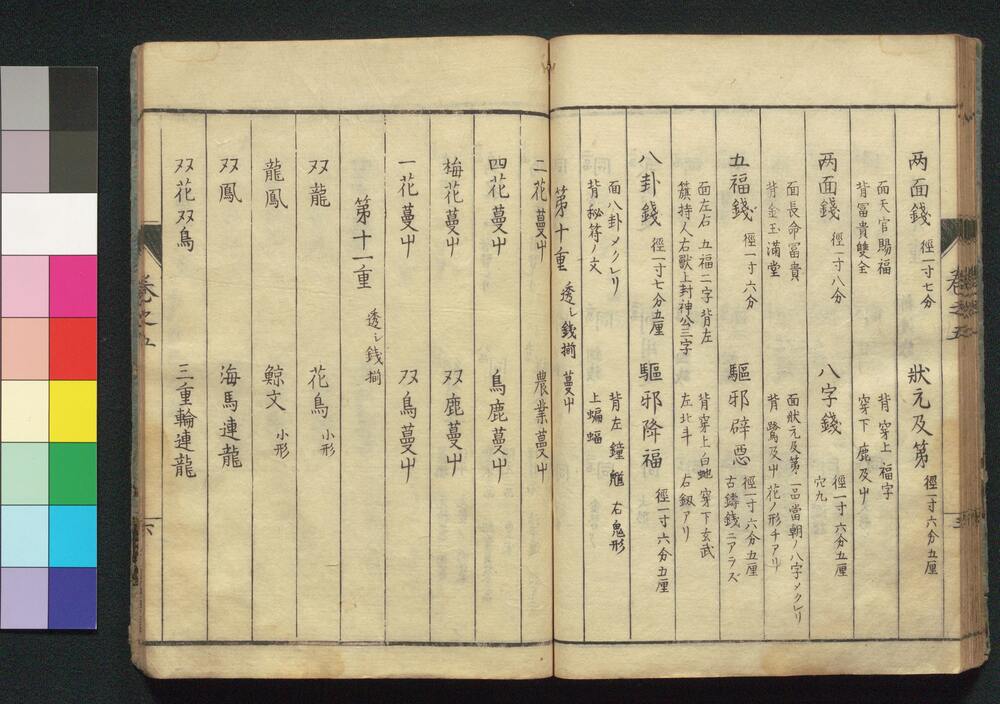 两面錢 徑一寸七分
面天官賜福
背冨貴雙全
狀元及第 徑一寸六分五厘
背穿上福字
穿下鹿及屮
两面錢 徑一寸八分
面長命冨貴
背金玉滿堂
八字錢 徑一寸六分五厘
穴九
面狀元及第一品當朝ノ八字メクレリ
背鷺及屮花ノ形チアリ
五福錢 徑一寸六分
面左右五福二字背左
籏持人右獸上封神公三字
驅邪辟悪 徑一寸六分五厘
古鑄錢ニアラズ
背穿上白虵穿下玄武
左北斗 右劔アリ
八卦錢 徑一寸七分五厘
面八卦メクレリ
背秘符ノ文
驅邪降福 徑一寸六分五厘
背左鐘馗 右鬼形
上蝙蝠
第十重 透シ銭揃 蔓屮
二花蔓屮 農業蔓屮
四花蔓屮 鳥鹿蔓屮
梅花蔓屮 双鹿蔓屮
一花蔓屮 双鳥蔓屮
第十一重 透シ銭揃
双龍 花鳥 小形
龍鳳 鯨文 小形
双鳳 海馬連龍
双花双鳥 三重輪連龍
卷之五
六